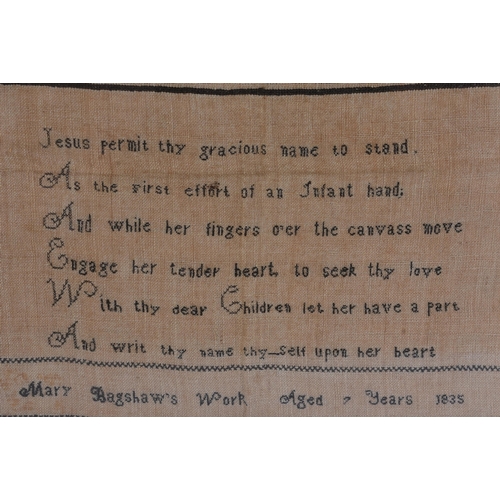 Jesus permit thy gracious name to stand.
As the first effort of an Infant hand;
And while her fingers o'er the canvass move
Engage her tender heart, to seek thy love
With thy dear Children let her have a part
And writ thy name thy-Self upon her heart
Mary Bagshaw's Work Aged 7 Years 1835